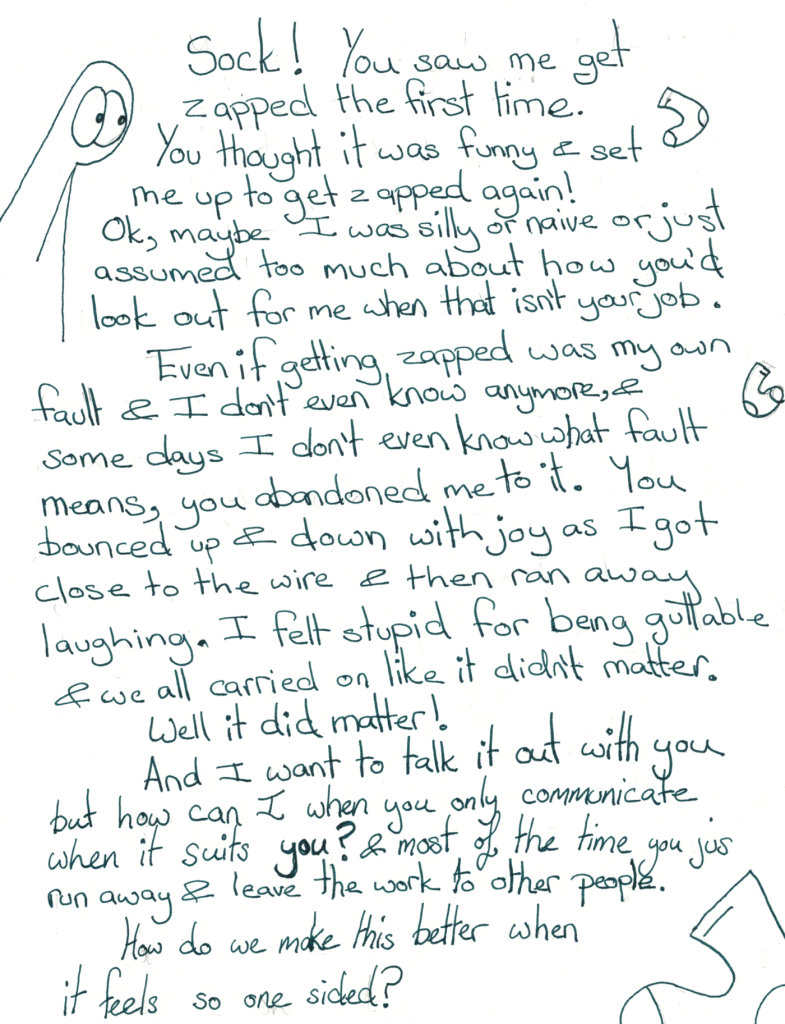 Sock! You saw me get
zapped the first time.
You thought it was funny & set
me up to get zapped again!
Ok, maybe I was silly or naive or just
assumed too much about how you'd
look out for me when that isn't your job.
Even if getting zapped was my own
fault & I don't even know anymore, &
some days I don't even know what fault
means, you abandoned me to it. You
bounced up & down with joy as I got
close to the wire & then ran away
laughing. I felt stupid for being gullable
& we all carried on like it didn't matter.
Well it did matter!
And I want to talk it out with you
but how can I when you only communicate
when it suits you? & most of the time you jus
run away & leave the work to other people.
How do we make this better when
it feels so one sided?